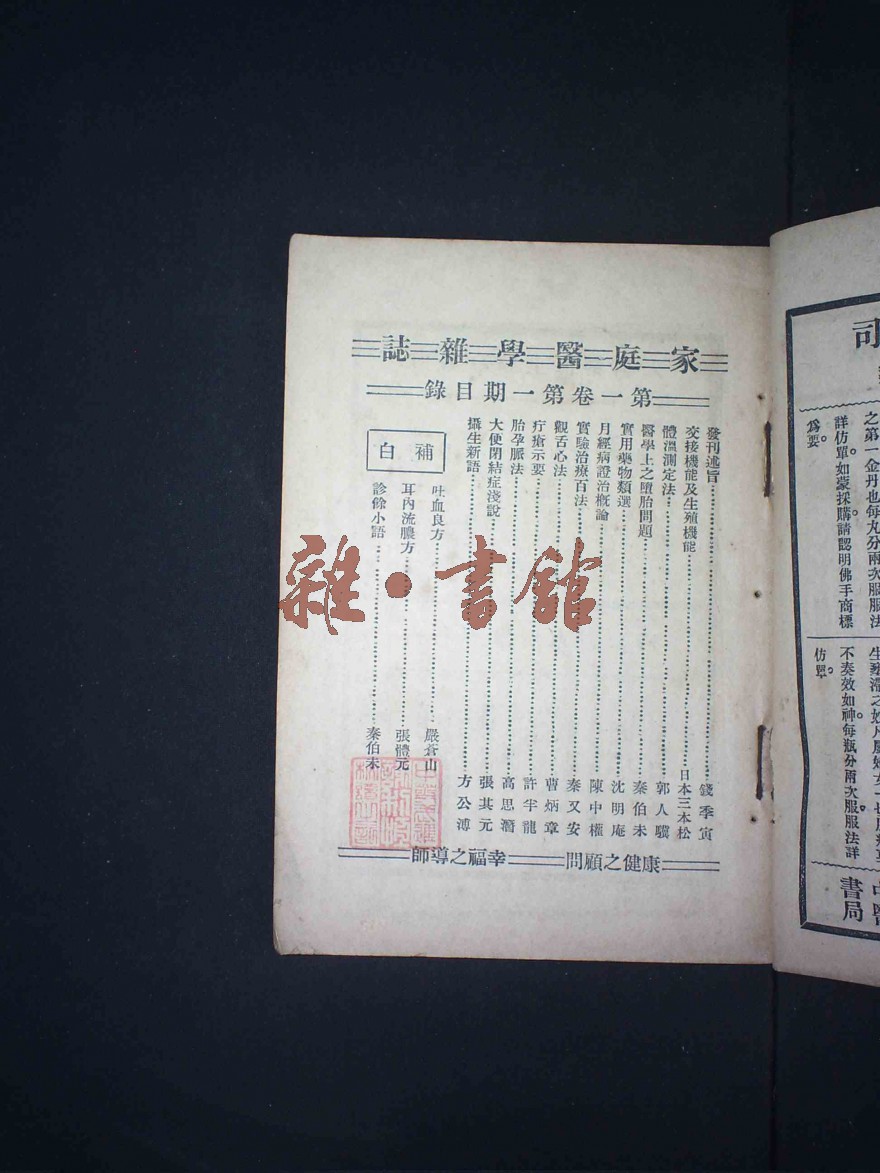 家庭醫學雜誌
第一卷第一期目錄
發刊述旨……錢季寅
交接機能及生殖機能……日本三本松
體溫測定法……郭人驥
醫學上之墮胎問題……秦伯未
實用藥物類選……沈明庵
月經病證治概論……陳中權
實驗治療百法……秦又安
觀舌心法……曹炳章
疔瘡示要……許半龍
胎孕脈法……高思潛
大便閉結症淺說……張其元
攝生新語……方公溥
補白
吐血良方……嚴蒼山
耳內流膿方……張體元
診餘小語……秦伯未
康健之顧問
幸福之導師
雜·書館
司
之第一金丹也每丸分兩次服服法
詳仿單。如蒙採購請認明佛手商標
爲要。
不奏效如神。每瓶分兩次服。服法詳
仿單。
書局